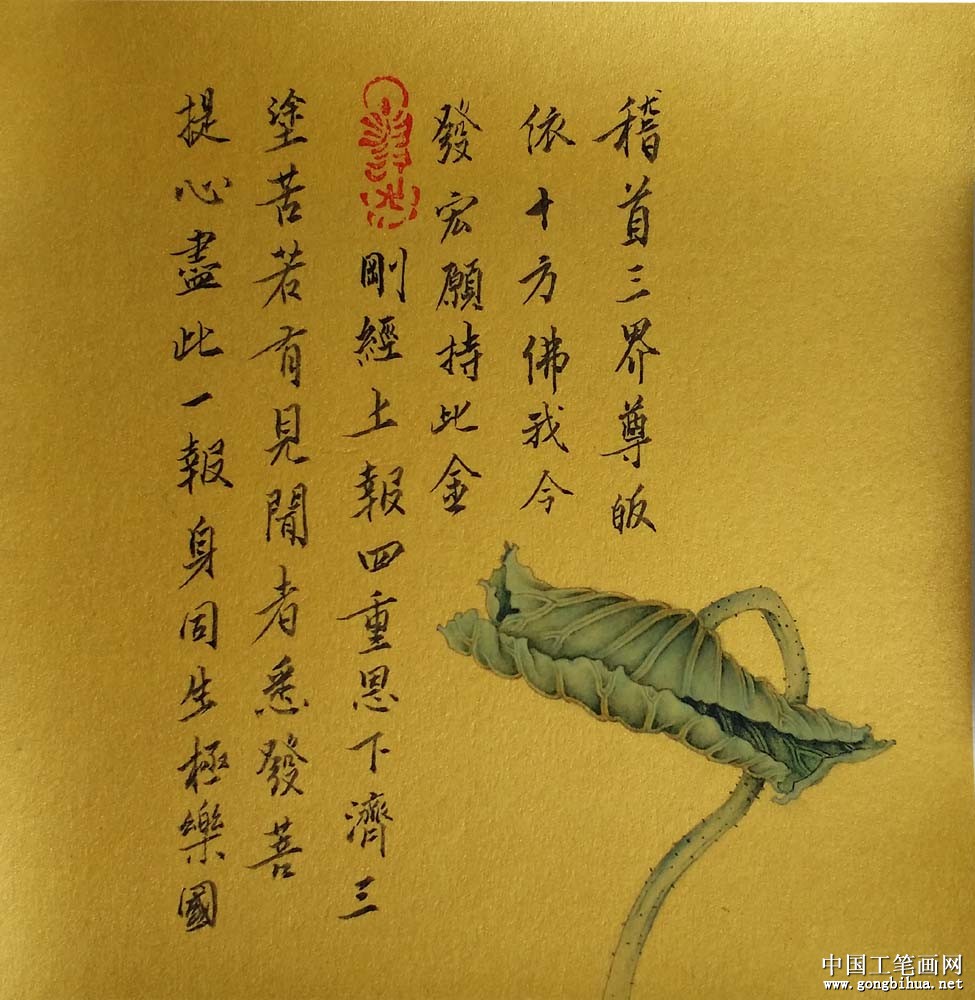 稽首三界尊皈
依十方佛我今
發宏願持此金
剛經上報四重恩下濟三
塗苦若有見聞者悉發菩
提心盡此一報身同生極樂國
中国工笔画网
www.gongbihua.net